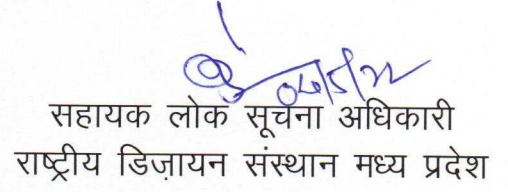 सहायक लोक सूचना अधिकारी
राष्ट्रीय डिज़ायन संस्थान मध्य प्रदेश